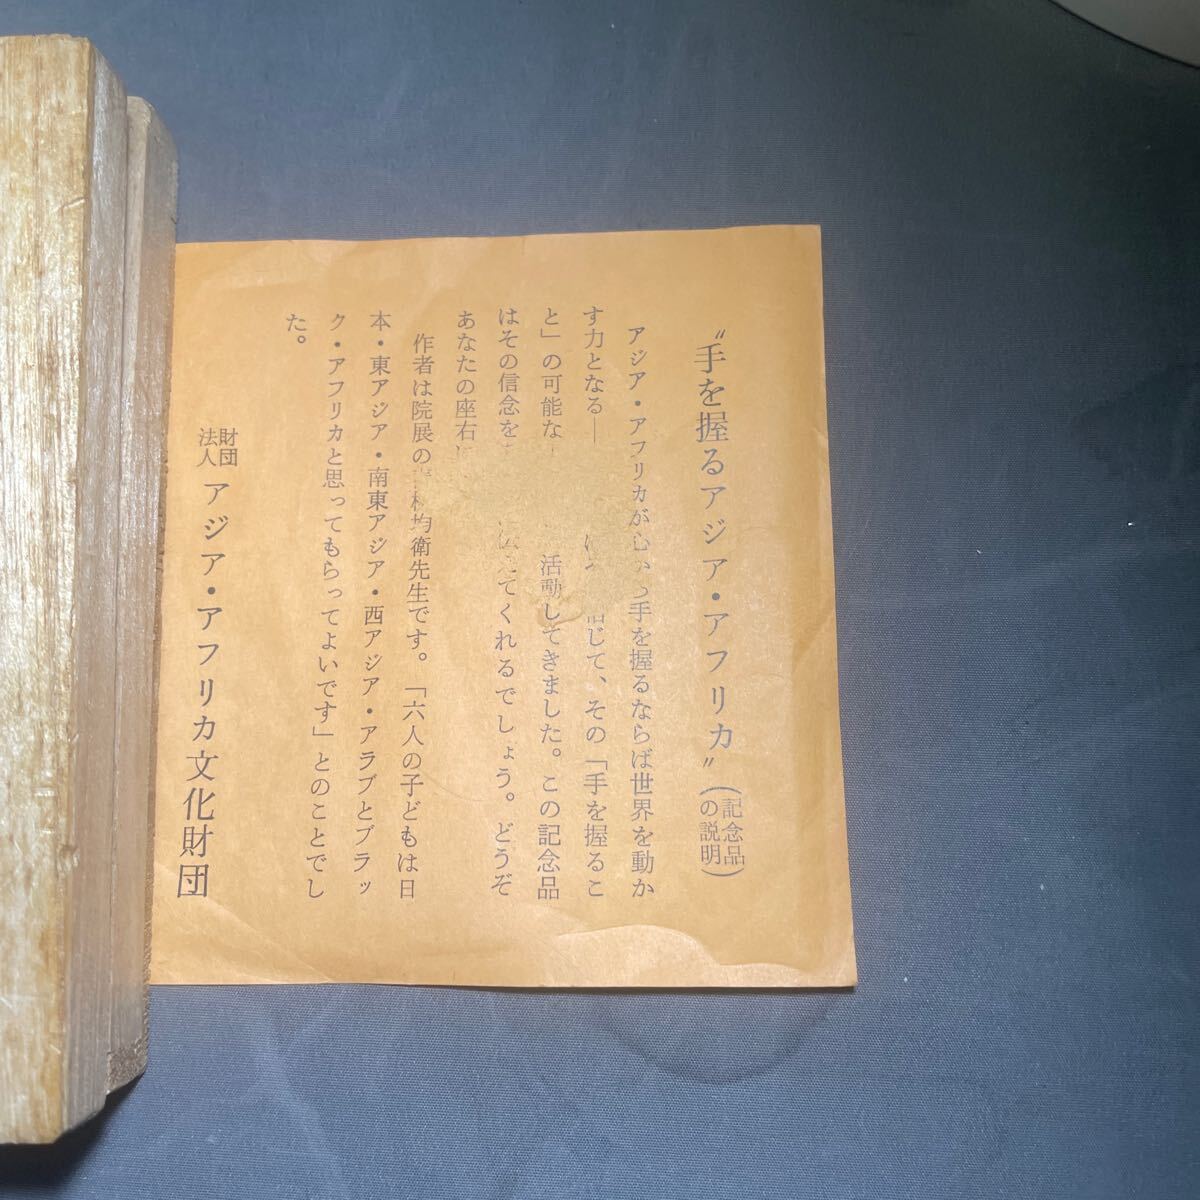 〝手を握るアジア・アフリカ〟(記念品の説明)
アジア・アフリカが心から手を握るならば世界を動か
す力となる― 信じて、その「手を握るこ
と」の可能な 活動してきました。この記念品
はその信念を 伝えてくれるでしょう。どうぞ
あなたの座右に
作者は院展の 均衛先生です。「六人の子どもは日
本・東アジア・南東アジア・西アジア・アラブとブラッ
ク・アフリカと思ってもらってよいです」とのことでし
た。
財団法人 アジア・アフリカ文化財団